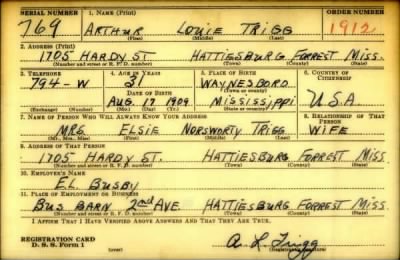 SERIAL NUMBER 1. NAME (Print) ORDER NUMBER
769 ARTHUR LOUIE TRIGG 1912
(First) (Middle) (Last)
2. ADDRESS (Print)
1705 HARDY ST HATTIESBURG FORREST MISS.
(Number and street or R. F. D. number) (Town) (County) (State)
3. TELEPHONE 4. AGE IN YEARS 5. PLACE OF BIRTH 6. COUNTRY OF CITIZENSHIP
794-W 31 WAYNESBORO U.S.A.
DATE OF BIRTH (Town or county)
AUG. 17 1909 MISSISSIPPI
(Exchange) (Number) (Mo.) (Day) (Yr.) (State or country)
7. NAME OF PERSON WHO WILL ALWAYS KNOW YOUR ADDRESS 8. RELATIONSHIP OF THAT PERSON
MRS. ELSIE NORSWORTY TRIGG WIFE
(Mr., Mrs., Miss) (First) (Middle) (Last)
9. ADDRESS OF THAT PERSON
1705 HARDY ST. HATTIESBURG FORREST MISS.
(Number and street or R. F. D. number) (Town) (County) (State)
10. EMPLOYER'S NAME
E.L. BUSBY
11. PLACE OF EMPLOYMENT OR BUSINESS
BUS BARN 2nd AVE HATTIESBURG FORREST MISS
(Number and street or R. F. D. number) (Town) (County) (State)
I AFFIRM THAT I HAVE VERIFIED ABOVE ANSWERS AND THAT THEY ARE TRUE.
REGISTRATION CARD
D. S. S. Form 1 (over) A. L. Trigg
(Registrant's signature)